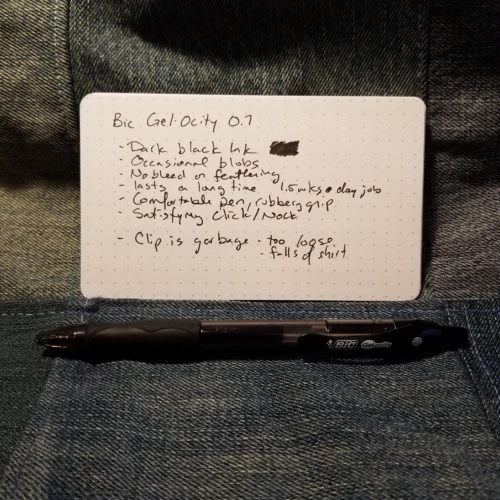 Bic Gel·Ocity 0.7
- Dark black Ink
- Occasional blobs
- No bleed or feathering
- lasts a long time 1.5wks @ day job
- Comfortable pen, rubbery grip
- Satisfying Click/Nock
- Clip is garbage - too loose
- falls of shirt
BIC